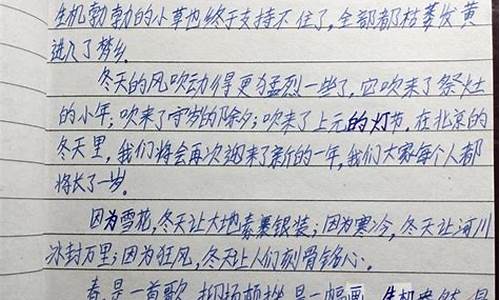 生机勃勃的小草也终于支持不住了,全部都枯萎发黄
进入了梦乡。
冬天的风吹动得更为猛烈一些了,它吹来了祭灶
的小年;吹来了守岁的除夕;吹来了上元的灯节。在北京的
冬天里,我们将会再次迎来了新的一年,我们大家每个人都
将长了一岁。
因为雪花,冬天让大地素裹银装;因为寒冷,冬天让河川
冰封万里;因为狂风,冬天让人们刻骨铭心。
春是一首歌,抑扬顿挫 是一幅画,生机盎然